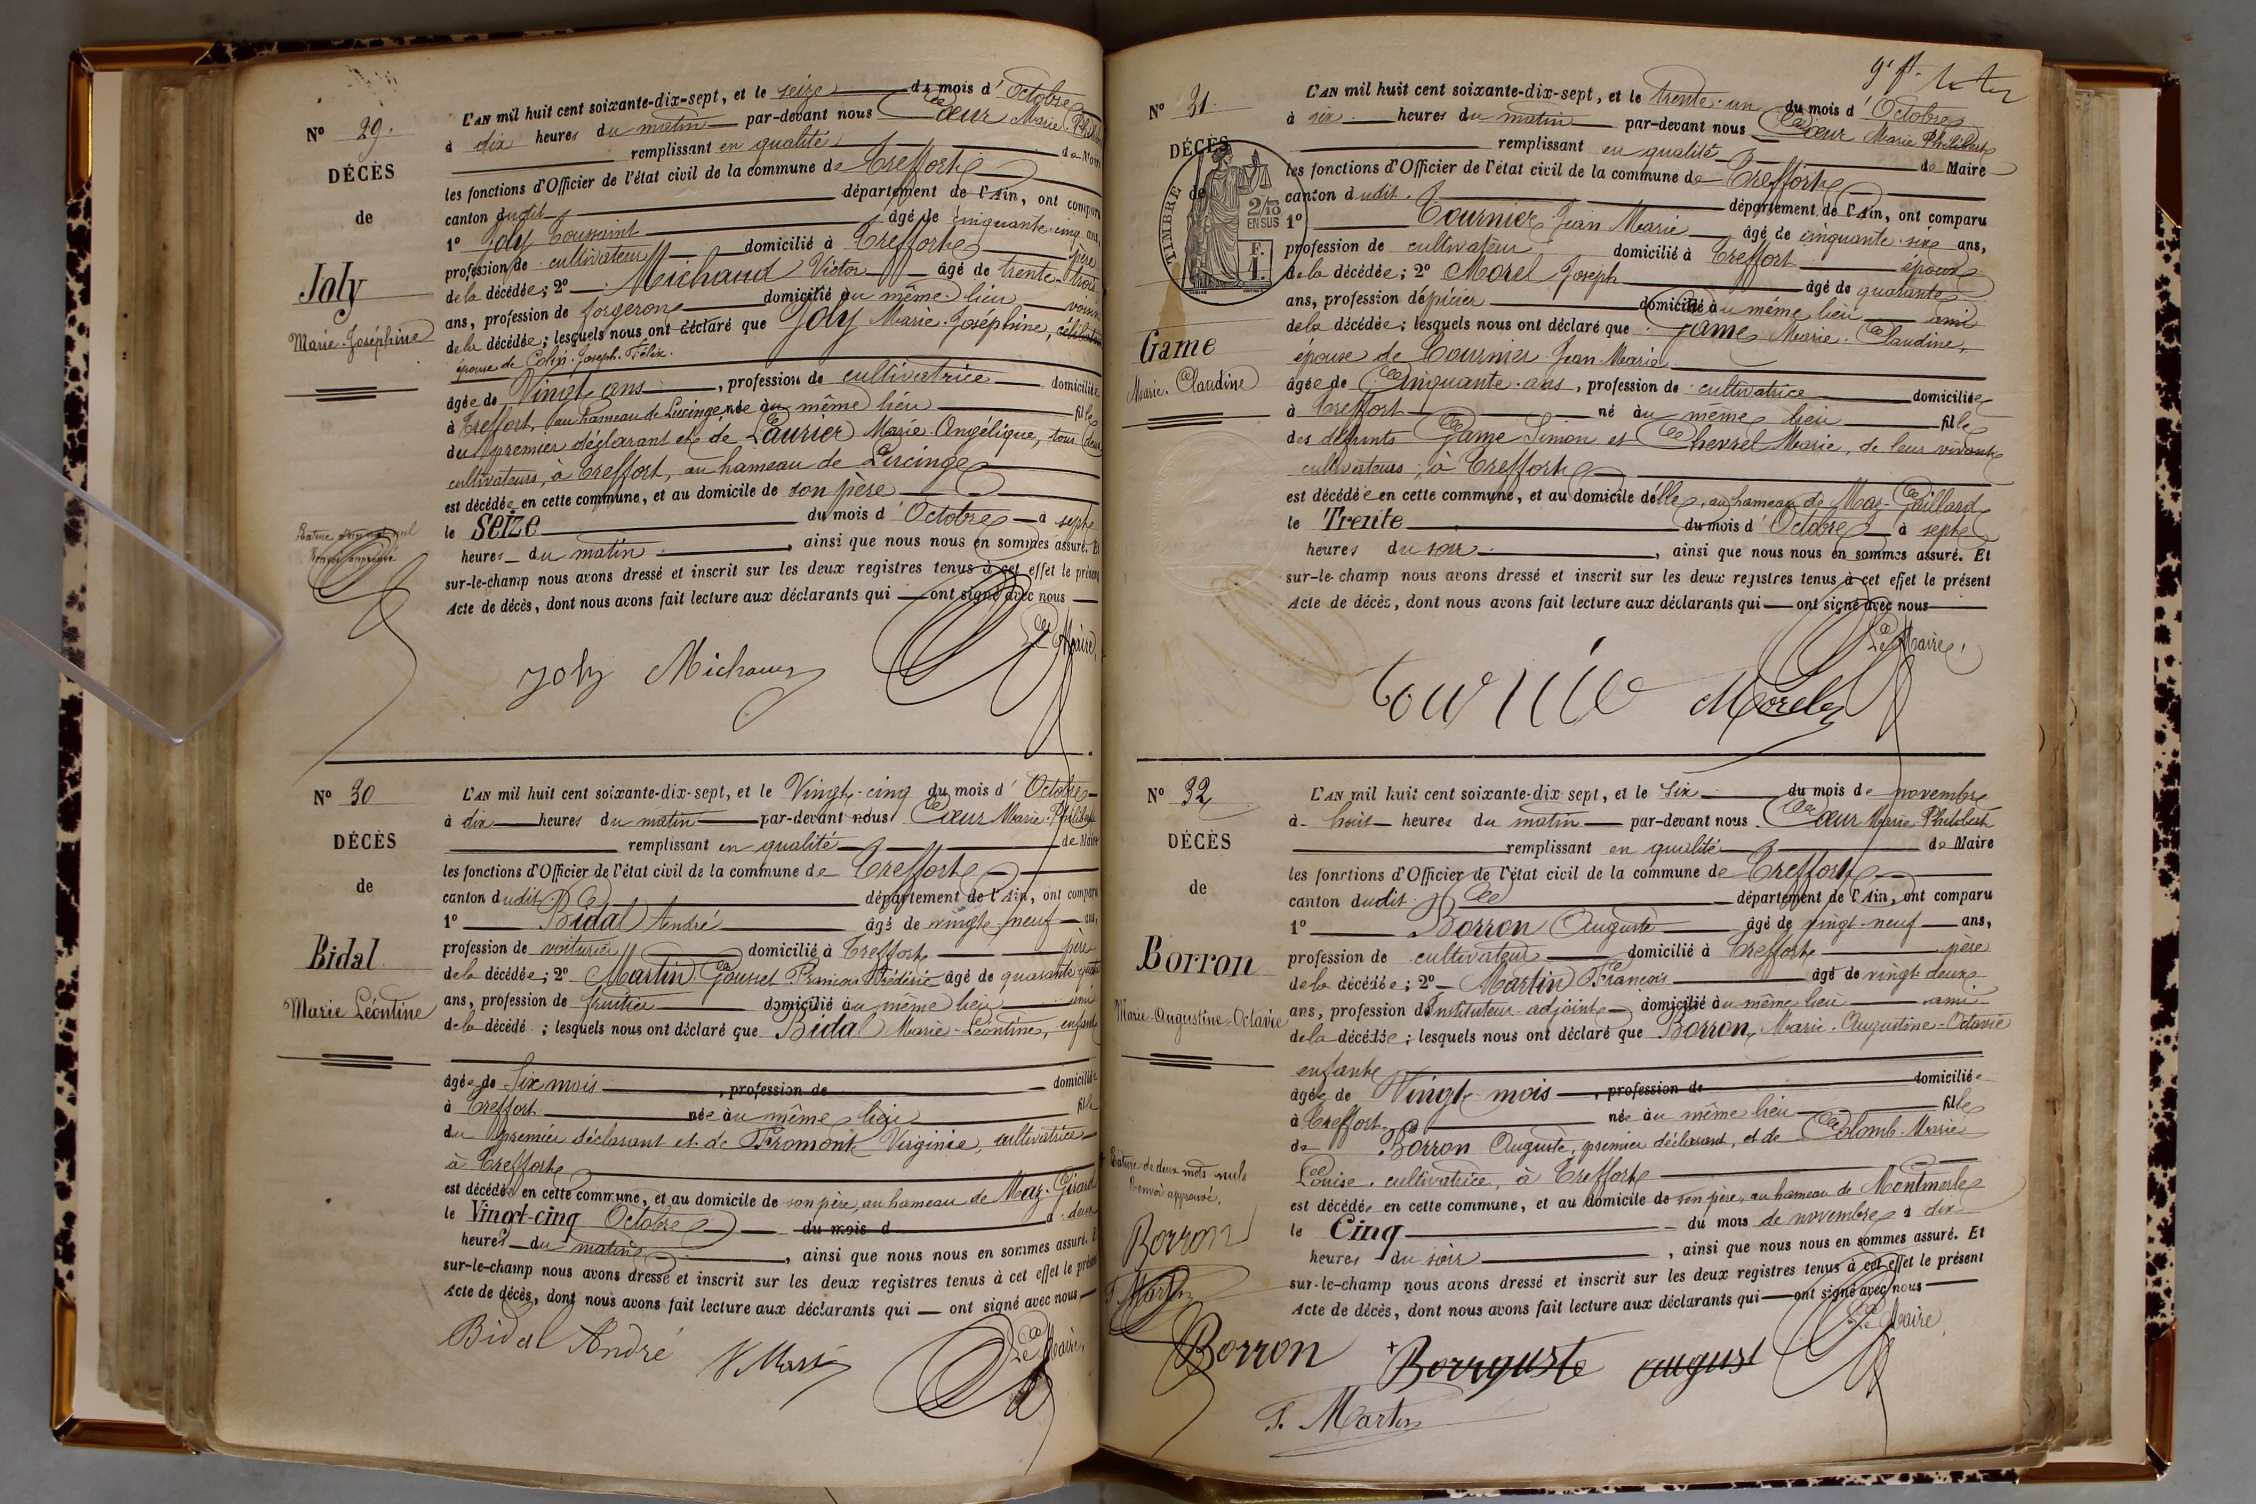 N° 29.
DÉCÈS
de
Joly
Marie-Joséphine
L'AN mil huit cent soixante-dix-sept, et le seize du mois d'Octobre
à dix heures du matin par-devant nous Cœur Marie Philibert
remplissant en qualité de Maire
les fonctions d'Officier de l'état civil de la commune de Treffort
canton dudit département de l'Ain, ont comparu
1° Joly Toussaint âgé de cinquante-cinq ans,
profession de cultivateur domicilié à Treffort père
de la décédée; 2° Michaud Victor âgé de trente-trois
ans, profession de forgeron domicilié au même lieu voisin
de la décédée; lesquels nous ont déclaré que Joly Marie-Joséphine, célibataire
épouse de Colin Joseph-Félix.
âgée de Vingt ans, profession de cultivatrice domiciliée
à Treffort, au hameau de Lucinge née au même lieu fille
du premier déclarant et de Laurier Marie-Angélique, tous deux
cultivateurs, à Treffort, au hameau de Lucinge
est décédée en cette commune, et au domicile de son père
le Seize du mois d'Octobre à sept
heures du matin, ainsi que nous nous en sommes assuré. Et
sur-le-champ nous avons dressé et inscrit sur les deux registres tenus à cet effet le présent
Acte de décès, dont nous avons fait lecture aux déclarants qui ont signé avec nous
Le Maire,
Joly Michaud
N° 30
DÉCÈS
de
Bidal
Marie Léontine
L'AN mil huit cent soixante-dix-sept, et le Vingt-cinq du mois d'Octobre
à dix heures du matin par-devant nous Cœur Marie-Philibert
remplissant en qualité de Maire
les fonctions d'Officier de l'état civil de la commune de Treffort
canton dudit département de l'Ain, ont comparu
1° Bidal André âgé de vingt-neuf ans,
profession de voiturier domicilié à Treffort père
de la décédée; 2° Martin Gousset François Frédéric âgé de quarante quatre
ans, profession de fruitier domicilié au même lieu ami
de la décédé; lesquels nous ont déclaré que Bidal Marie-Léontine, enfant
âgée de Six mois, profession de domiciliée
à Treffort née au même lieu fille
du premier déclarant et de Fromont Virginie, cultivatrice
à Treffort
est décédée en cette commune, et au domicile de son père, au hameau de Maz-Girard
le Vingt-cinq Octobre du mois d à deux
heures du matin, ainsi que nous nous en sommes assuré. Et
sur-le-champ nous avons dressé et inscrit sur les deux registres tenus à cet effet le présent
Acte de décès, dont nous avons fait lecture aux déclarants qui ont signé avec nous
Le Maire,
Bidal André
N° 31.
DÉCÈS
de
TIMBRE
2/10
EN SUS
F.
1.
Game
Marie-Claudine
L'AN mil huit cent soixante-dix-sept, et le trente-un du mois d'Octobre
à dix heures du matin par-devant nous Cœur Marie Philibert
remplissant en qualité de Maire
les fonctions d'Officier de l'état civil de la commune de Treffort
canton dudit département de l'Ain, ont comparu
1° Tournier Jean Marie âgé de cinquante-six ans,
profession de cultivateur domicilié à Treffort époux
de la décédée; 2° Morel Joseph âgé de quarante
ans, profession d'épicier domicilié au même lieu ami
de la décédée; lesquels nous ont déclaré que Game Marie-Claudine,
épouse de Tournier Jean Marie
âgée de Cinquante ans, profession de cultivatrice domiciliée
à Treffort né au même lieu fille
des défunts Game Simon et Chevrel Marie, de leur vivant
cultivateurs, à Treffort
est décédée en cette commune, et au domicile d'elle, au hameau de Maz-Gaillard
le Trente du mois d'Octobre à sept
heures du soir, ainsi que nous nous en sommes assuré. Et
sur-le-champ nous avons dressé et inscrit sur les deux registres tenus à cet effet le présent
Acte de décès, dont nous avons fait lecture aux déclarants qui ont signé avec nous
Le Maire,
Morel
N° 32
DÉCÈS
de
Borron
Marie-Augustine-Octavie
Rature de deux mots nuls
Renvoi approuvé,
Borron
F. Martin
L'AN mil huit cent soixante-dix sept, et le six du mois de novembre
à huit heures du matin par-devant nous Cœur Marie Philibert
remplissant en qualité de Maire
les fonctions d'Officier de l'état civil de la commune de Treffort
canton dudit département de l'Ain, ont comparu
1° Borron Auguste âgé de vingt-neuf ans,
profession de cultivateur domicilié à Treffort père
de la décédée; 2° Martin François âgé de vingt-deux
ans, profession d'Instituteur-adjoint domicilié au même lieu ami
de la décédée; lesquels nous ont déclaré que Borron Marie-Augustine-Octavie
enfant
âgée de Vingt mois, profession de domiciliée
à Treffort née au même lieu fille
de Borron Auguste, premier déclarant, et de Colomb Marie
Louise, cultivatrice, à Treffort
est décédée en cette commune, et au domicile de son père, au hameau de Montmerle
le Cinq du mois de novembre à dix
heures du soir, ainsi que nous nous en sommes assuré. Et
sur-le-champ nous avons dressé et inscrit sur les deux registres tenus à cet effet le présent
Acte de décès, dont nous avons fait lecture aux déclarants qui ont signé avec nous
Le Maire,
Borron Borrguste august
F. Martin